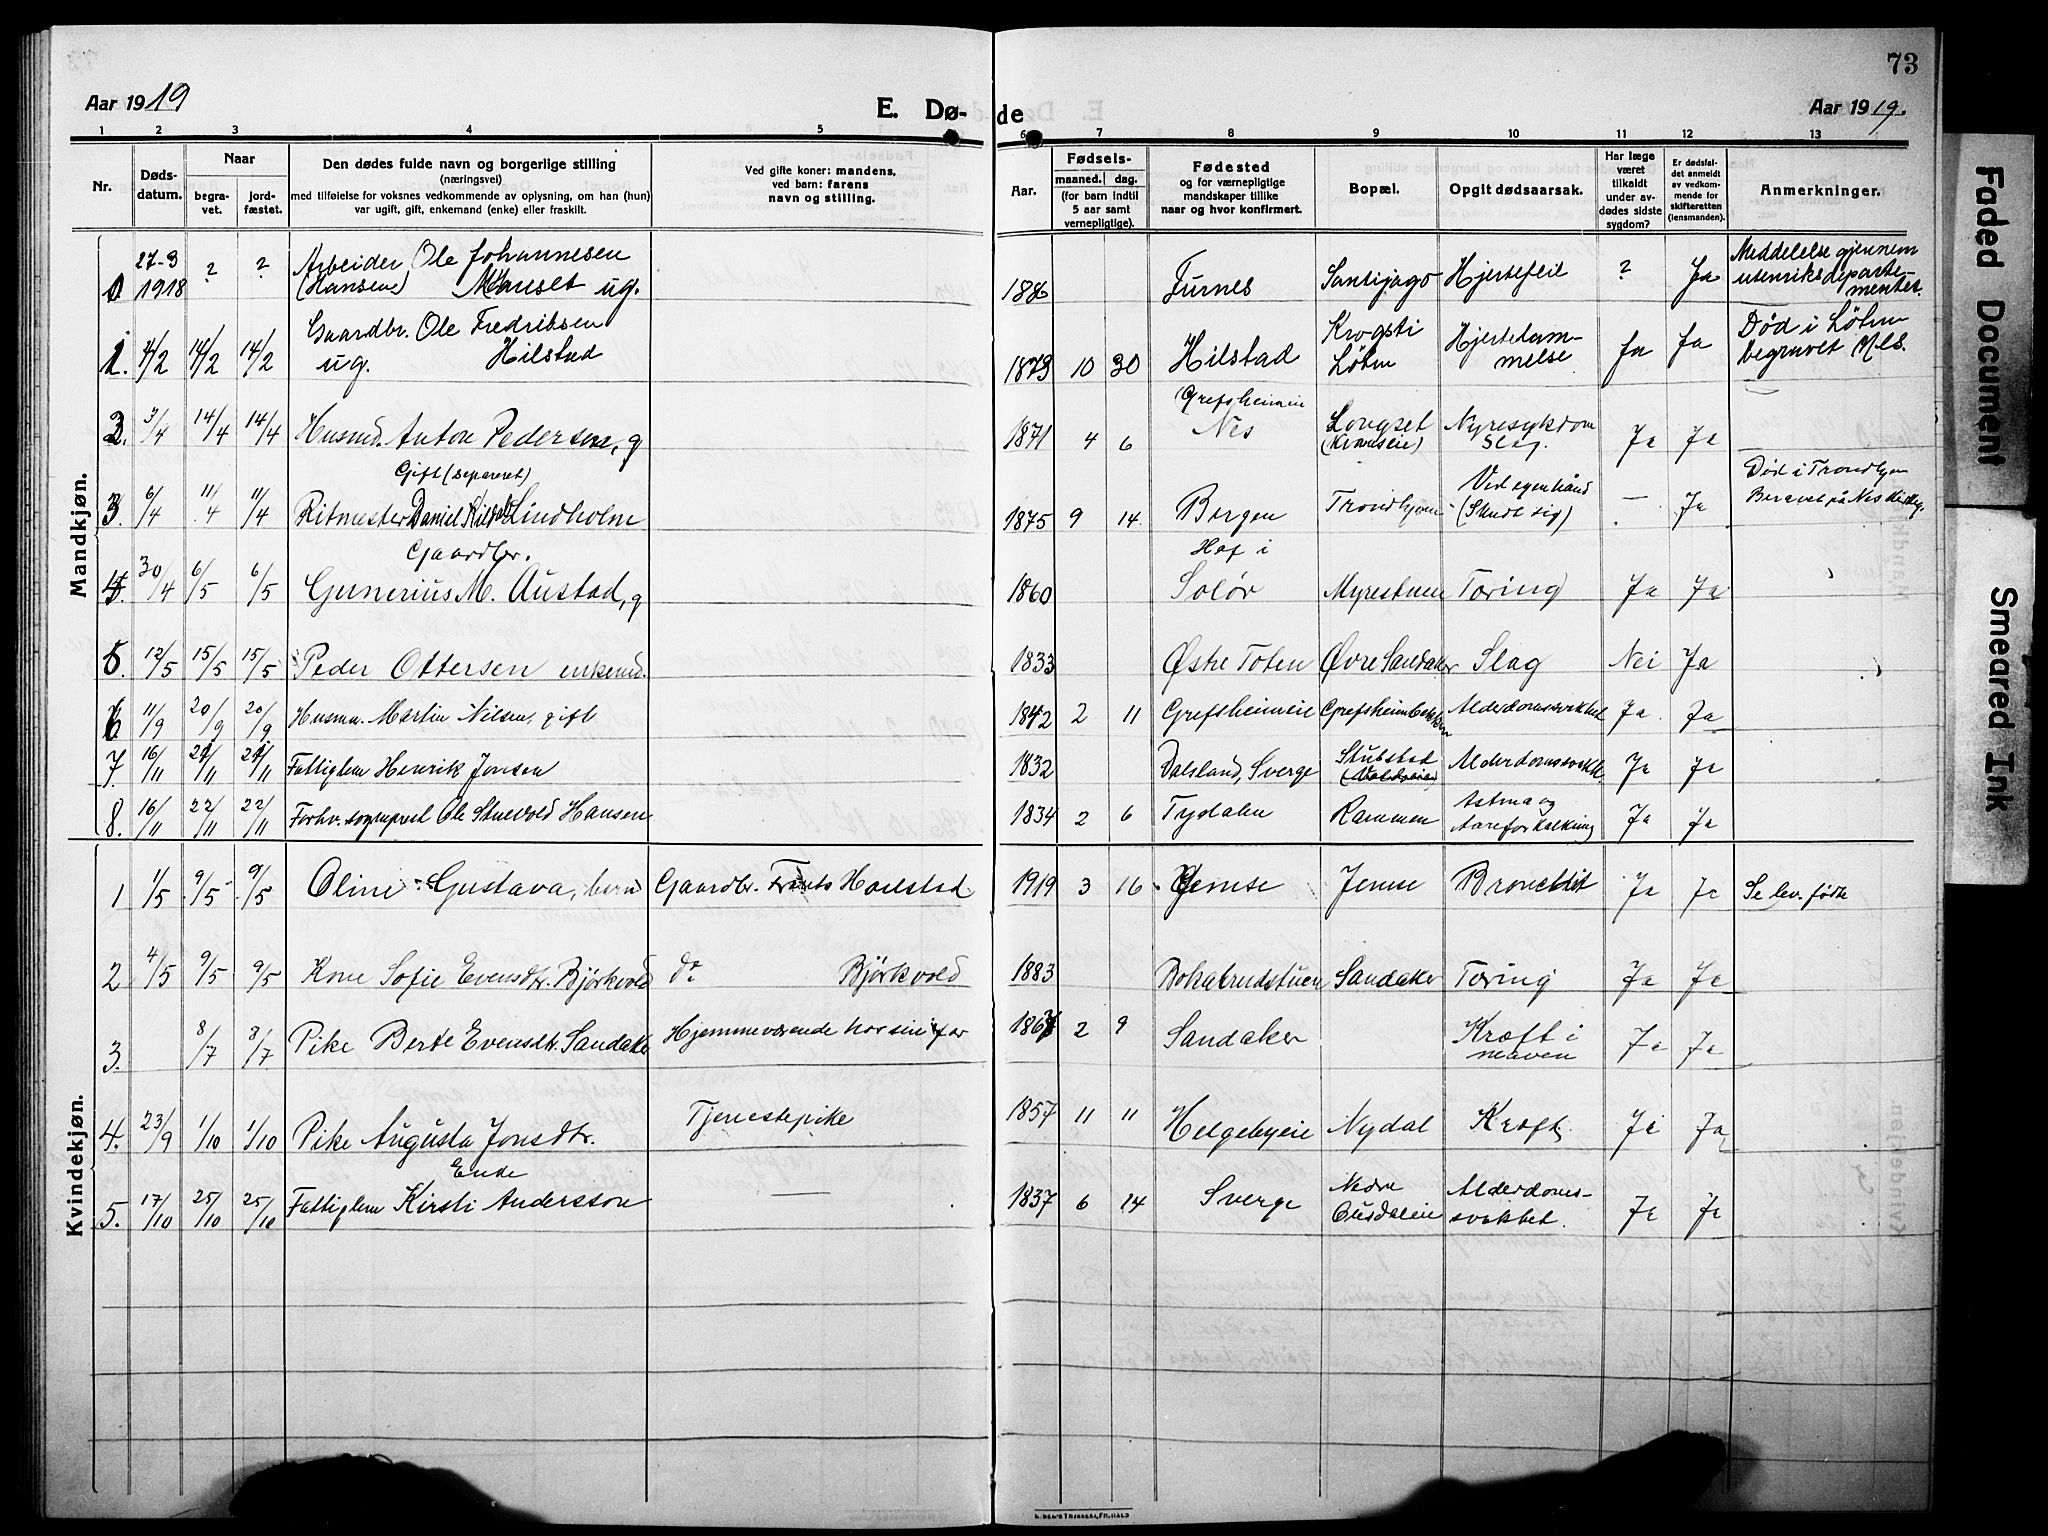 73
Aar 1919
E. Dø-
de
Aar 1919.
1 2 3 4 5 6 7 8 9 10 11 12 13
Nr.
Døds-
datum.
Naar
begra-
vet.
jord-
fæstet.
Den dødes fulde navn og borgerlige stilling
(næringsvei)
med tilføielse for voksnes vedkommende av oplysning, om han (hun)
var ugift, gift, enkemand (enke) eller fraskilt.
Ved gifte koner: mandens,
ved barn: farens
navn og stilling.
Aar.
Fødsels-
maaned. dag.
(for barn indtil
5 aar samt
vernepligtige).
Fødested
og for værnepligtige
mandskaper tillike
naar og hvor konfirmert.
Bopæl.
Opgit dødsaarsak.
Har læge
været
tilkaldt
under av-
dødes sidste
sygdom?
Er dødsfal-
det anmeldt
av vedkom-
mende for
skifteretten
(lensmanden).
Anmerkninger.
Mandkjøn.
27-3
1918 ? ? Arbeider Ole Johannesen
(Hansen) ug. 1886 Furnes Santijago Hjertefeil ? Ja Meddelelse gjennem
utenriksdeparte-
mentet.
1. 4/2 14/2 14/2 Gaardbr. Ole Fredriksen
ug. Hilstad 1873 10 30 Hilstad Krogsti
Løten Hjertelam-
melse Ja Ja Død i Løten
begravet Nes.
2. 3/4 14/4 14/4 Husmd. Anton Pedersen, g 1871 4 6 Grefsheimeie
Nes Nyresykdom
Slag. Ja Ja
3. 6/4 11/4 11/4 Gift (separert)
Ritmester Daniel Lindholm 1875 9 14 Bergen Trondhjem Ved egen hånd
(Skudt sig) — Ja Død i Trondhjem
4. 30/4 6/5 6/5 Gaardbr.
Gunerius M. Austad, g 1860 Hof i
Solør Myrestuen Tæring Ja Ja
5 12/5 15/5 15/5 Peder Ottersen enkemd. 1833 Østre Toten Øvre Sandaker Slag Nei Ja
6 11/9 20/9 20/9 Husmn. Martin Nilsen, gift 1842 2 11 Grefsheimeie Grefsheimbakken Alderdomssvakhet Ja Ja
7 16/11 21/11 21/11 Fattiglem Henrik Jonsen 1832 Dalsland, Sverge Stubstad Alderdomssvakh. Ja Ja
8. 16/11 22/11 22/11 Forhv. sogneprest Ole Stuevold Hansen 1834 2 6 Tydalen Rammen Astma og
Aareforkalkning Ja Ja
Kvindekjøn.
1 1/5 9/5 9/5 Oline Gustava, barn Gaardbr. Hoelstad 1919 3 16 Jemse Jemse Bronchit Ja Ja Se lev. fødte
2 4/5 9/5 9/5 Kone Sofie Evensdtr. Björkvold do Björkvold 1883 Sandaker Tæring Ja Ja
3. 8/7 8/7 Pike Berte Evensdtr. Sandaker Hjemmeværende hos sin far 2 9 Sandaker Kræft i
maven Ja Ja
4. 23/9 1/10 1/10 Pike Augusta Jonsdtr. Tjenestepike 1857 11 11 Helgebyeie Nydal Kræft Ja Ja
5. 17/10 25/10 25/10 Enke
Fattiglem Kirsti Andersson — 1837 6 14 Sverge Nedre
Alderdoms-
svakhet. Ja Ja
Faded Document
Smeared Ink